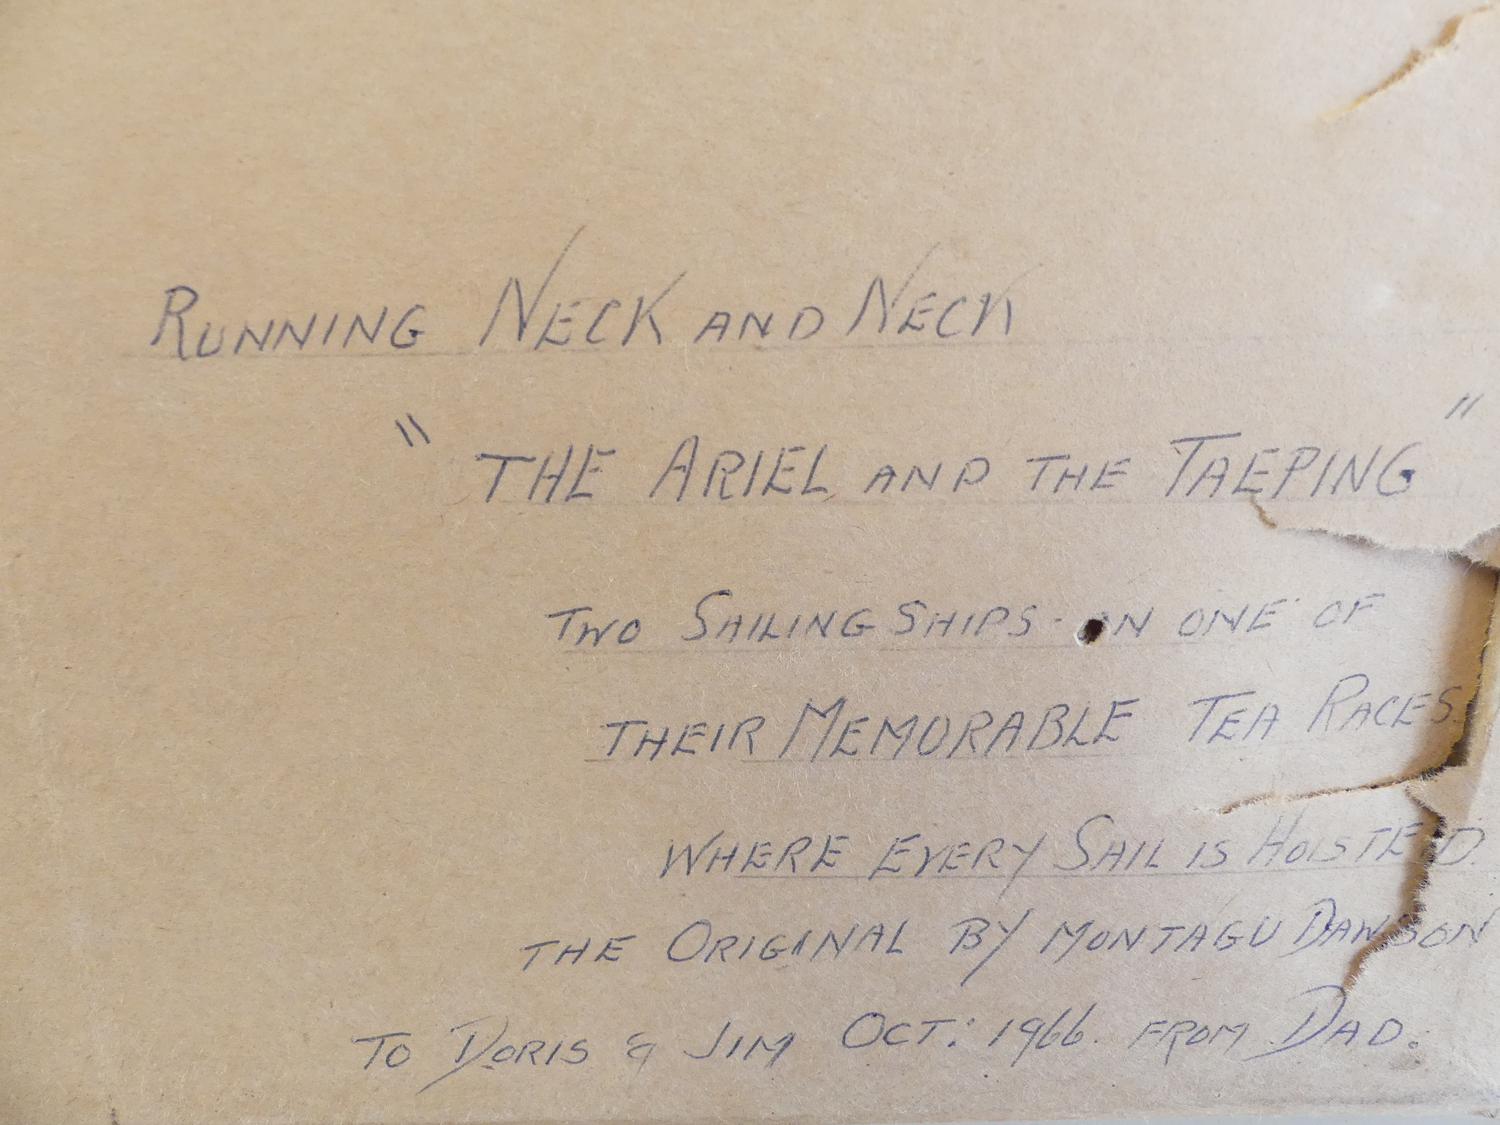 RUNNING NECK AND NECK
"THE ARIEL AND THE TAEPING"
TWO SAILING SHIPS - ON ONE OF
THEIR MEMORABLE TEA RACES.
WHERE EVERY SAIL IS HOISTED.
THE ORIGINAL BY MONTAGU DAWSON
TO DORIS & JIM OCT: 1966. FROM DAD.